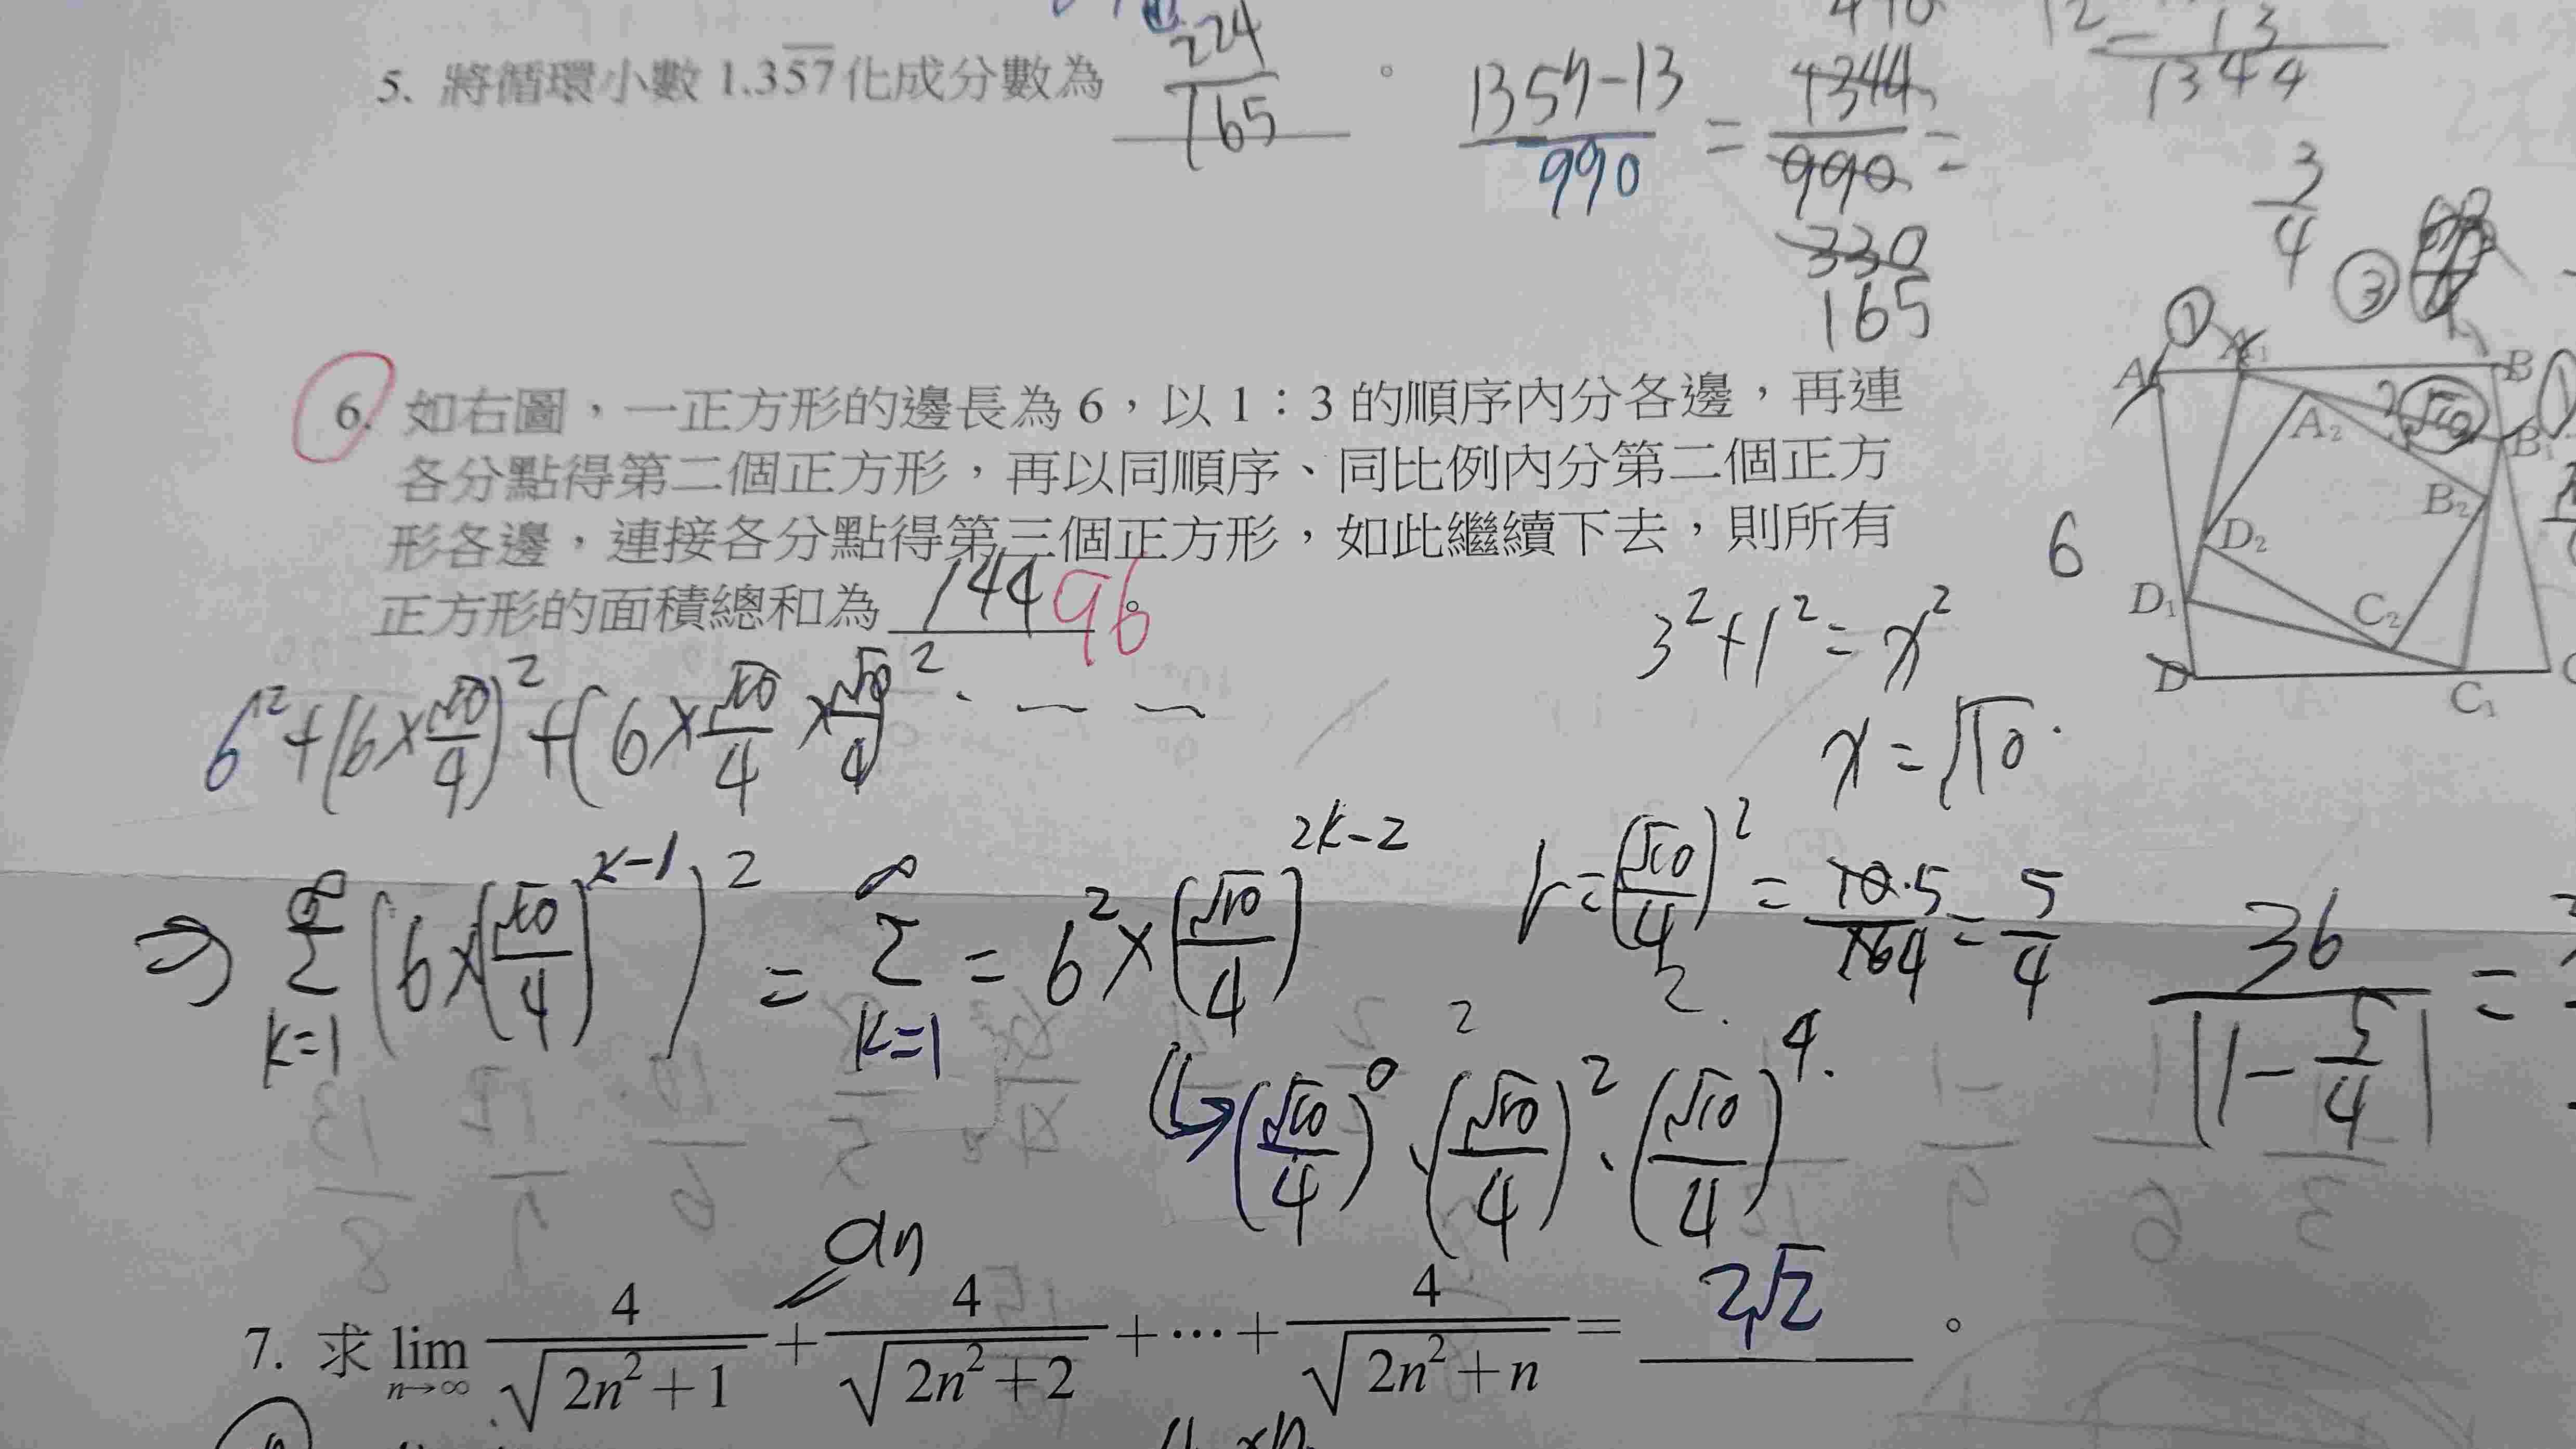 5. 將循環小數 1.3\overline{57} 化成分數為 \frac{224}{165} 。
\frac{1357-13}{990} = \frac{1344}{990} =
330
165
1344
\frac{3}{4}
6. 如右圖，一正方形的邊長為 6，以 1：3 的順序內分各邊，再連
各分點得第二個正方形，再以同順序、同比例內分第二個正方
形各邊，連接各分點得第三個正方形，如此繼續下去，則所有
正方形的面積總和為 144 96 。
① ③
A A₁ B
A₂ √10 B₁
B₂
6 D₂
D₁ C₂
D C₁
3² + 1² = x²
x = √10
6² + (6 × \frac{√10}{4})² + (6 × \frac{√10}{4} × \frac{√10}{4})² ...
⇒ \sum_{k=1}^{∞} (6 × (\frac{√10}{4})^{k-1})² = \sum_{k=1}^{∞} = 6² × (\frac{√10}{4})^{2k-2}
r = (\frac{√10}{4})² = \frac{10}{16} \frac{5}{4} = \frac{5}{4}
\frac{36}{|1 - \frac{5}{4}|} =
(\frac{√10}{4})^0 、 (\frac{√10}{4})² 、 (\frac{√10}{4})⁴
an
7. 求 \lim_{n→∞} \frac{4}{\sqrt{2n²+1}} + \frac{4}{\sqrt{2n²+2}} + ⋯ + \frac{4}{\sqrt{2n²+n}} = 2√2 。